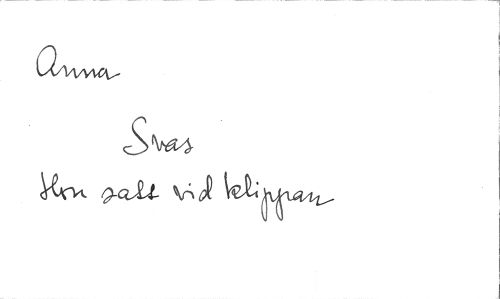 Anna
Svas
Hon satt vid klippan